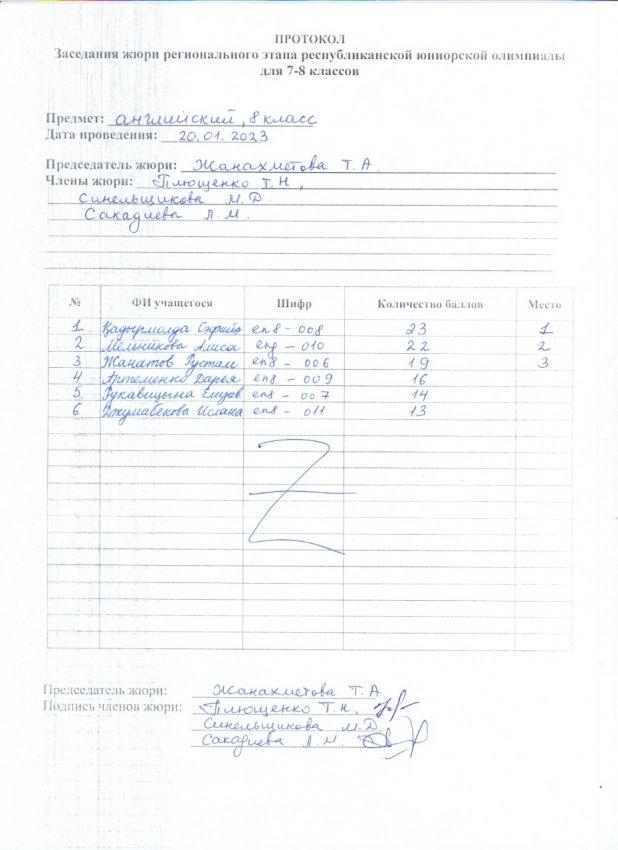 ПРОТОКОЛ
Заседания жюри регионального этапа республиканской юниорской олимпиады
для 7-8 классов
Предмет: английский, 8 класс
Дата проведения: 20.01.2023
Председатель жюри: Жанахметова Т.А.
Члены жюри: Плющенко Т.Н.,
Синельщикова М.Д.
Сакадиева Л.М.
№ ФИ учащегося Шифр Количество баллов Место
1 Қадырмолда en8-008 23 1
2 Мельникова Алиса eng-010 22 2
3 Жанатов Рустам en8-006 19 3
4 Артеменко Дарья en8-009 16
5 Рукавицына Елизав en8-007 14
6 ДжумабековаИслана en8-011 13
Z
Председатель жюри: Жанахметова Т.А
Подпись членов жюри: Плющенко Т.Н.,
Синельщикова М.Д
Сакадиева Л.М.